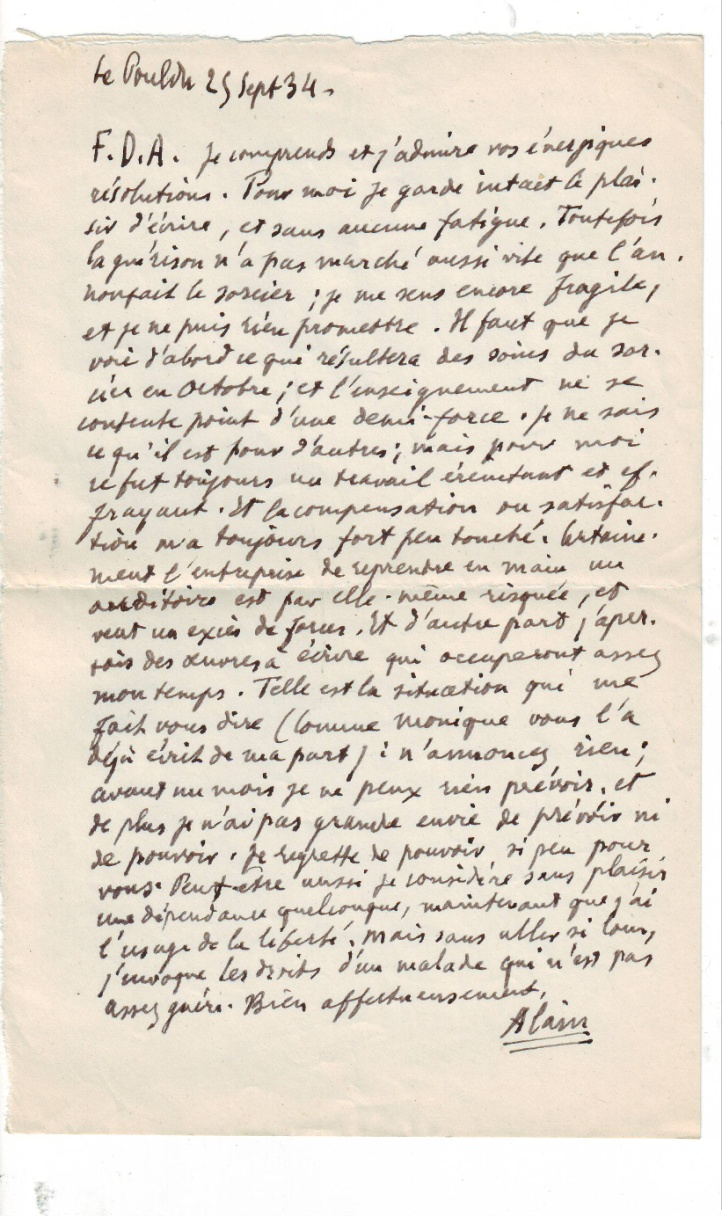 Le Pouldu 25 Sept 34.
F.D.A. Je comprends et j'admire vos énergiques
résolutions. Pour moi je garde intact le plai-
sir d'écrire, et sans aucune fatigue. Toutefois
la guérison n'a pas marché aussi vite que l'an-
nonçait le sorcier ; je me sens encore fragile,
et je ne puis rien promettre. Il faut que je
voie d'abord ce qui résultera des soins du sor-
cier en Octobre ; et l'enseignement ne se
contente point d'une demi-force. Je ne sais
ce qu'il est pour d'autres ; mais pour moi
ce fut toujours un travail éreintant et ef-
frayant. Et la compensation ou satisfac-
tion m'a toujours fort peu touché. Certaine-
ment l'entreprise de reprendre en main un
auditoire est par elle-même risquée, et
veut un excès de forces. Et d'autre part j'aper-
çois des œuvres à écrire qui occuperont assez
mon temps. Telle est la situation qui me
fait vous dire (comme Monique vous l'a
déjà écrit de ma part) : n'annoncez rien ;
avant un mois je ne peux rien prévoir, et
de plus je n'ai pas grande envie de prévoir ni
de pouvoir. Je regrette de pouvoir si peu pour
vous. Peut-être aussi je considère sans plaisir
une dépendance quelconque, maintenant que j'ai
l'usage de la liberté. Mais sans aller si loin,
j'invoque les droits d'un malade qui n'est pas
assez guéri. Bien affectueusement,
Alain